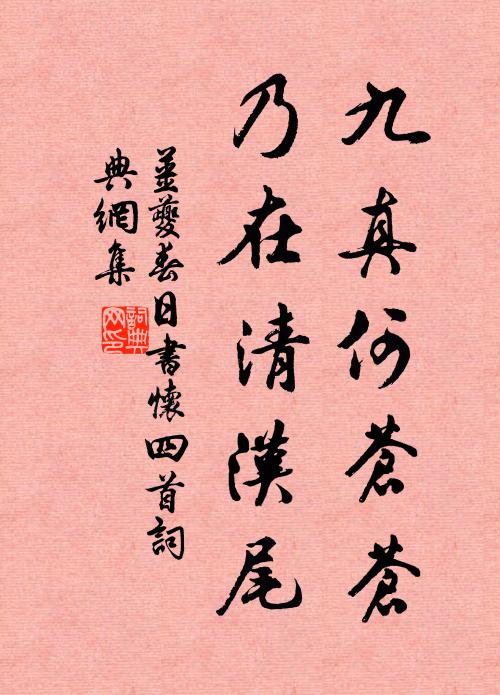 九真何蒼蒼
乃在清漢尾
姜夔春日書懷四首詞
典網集
詞典網印